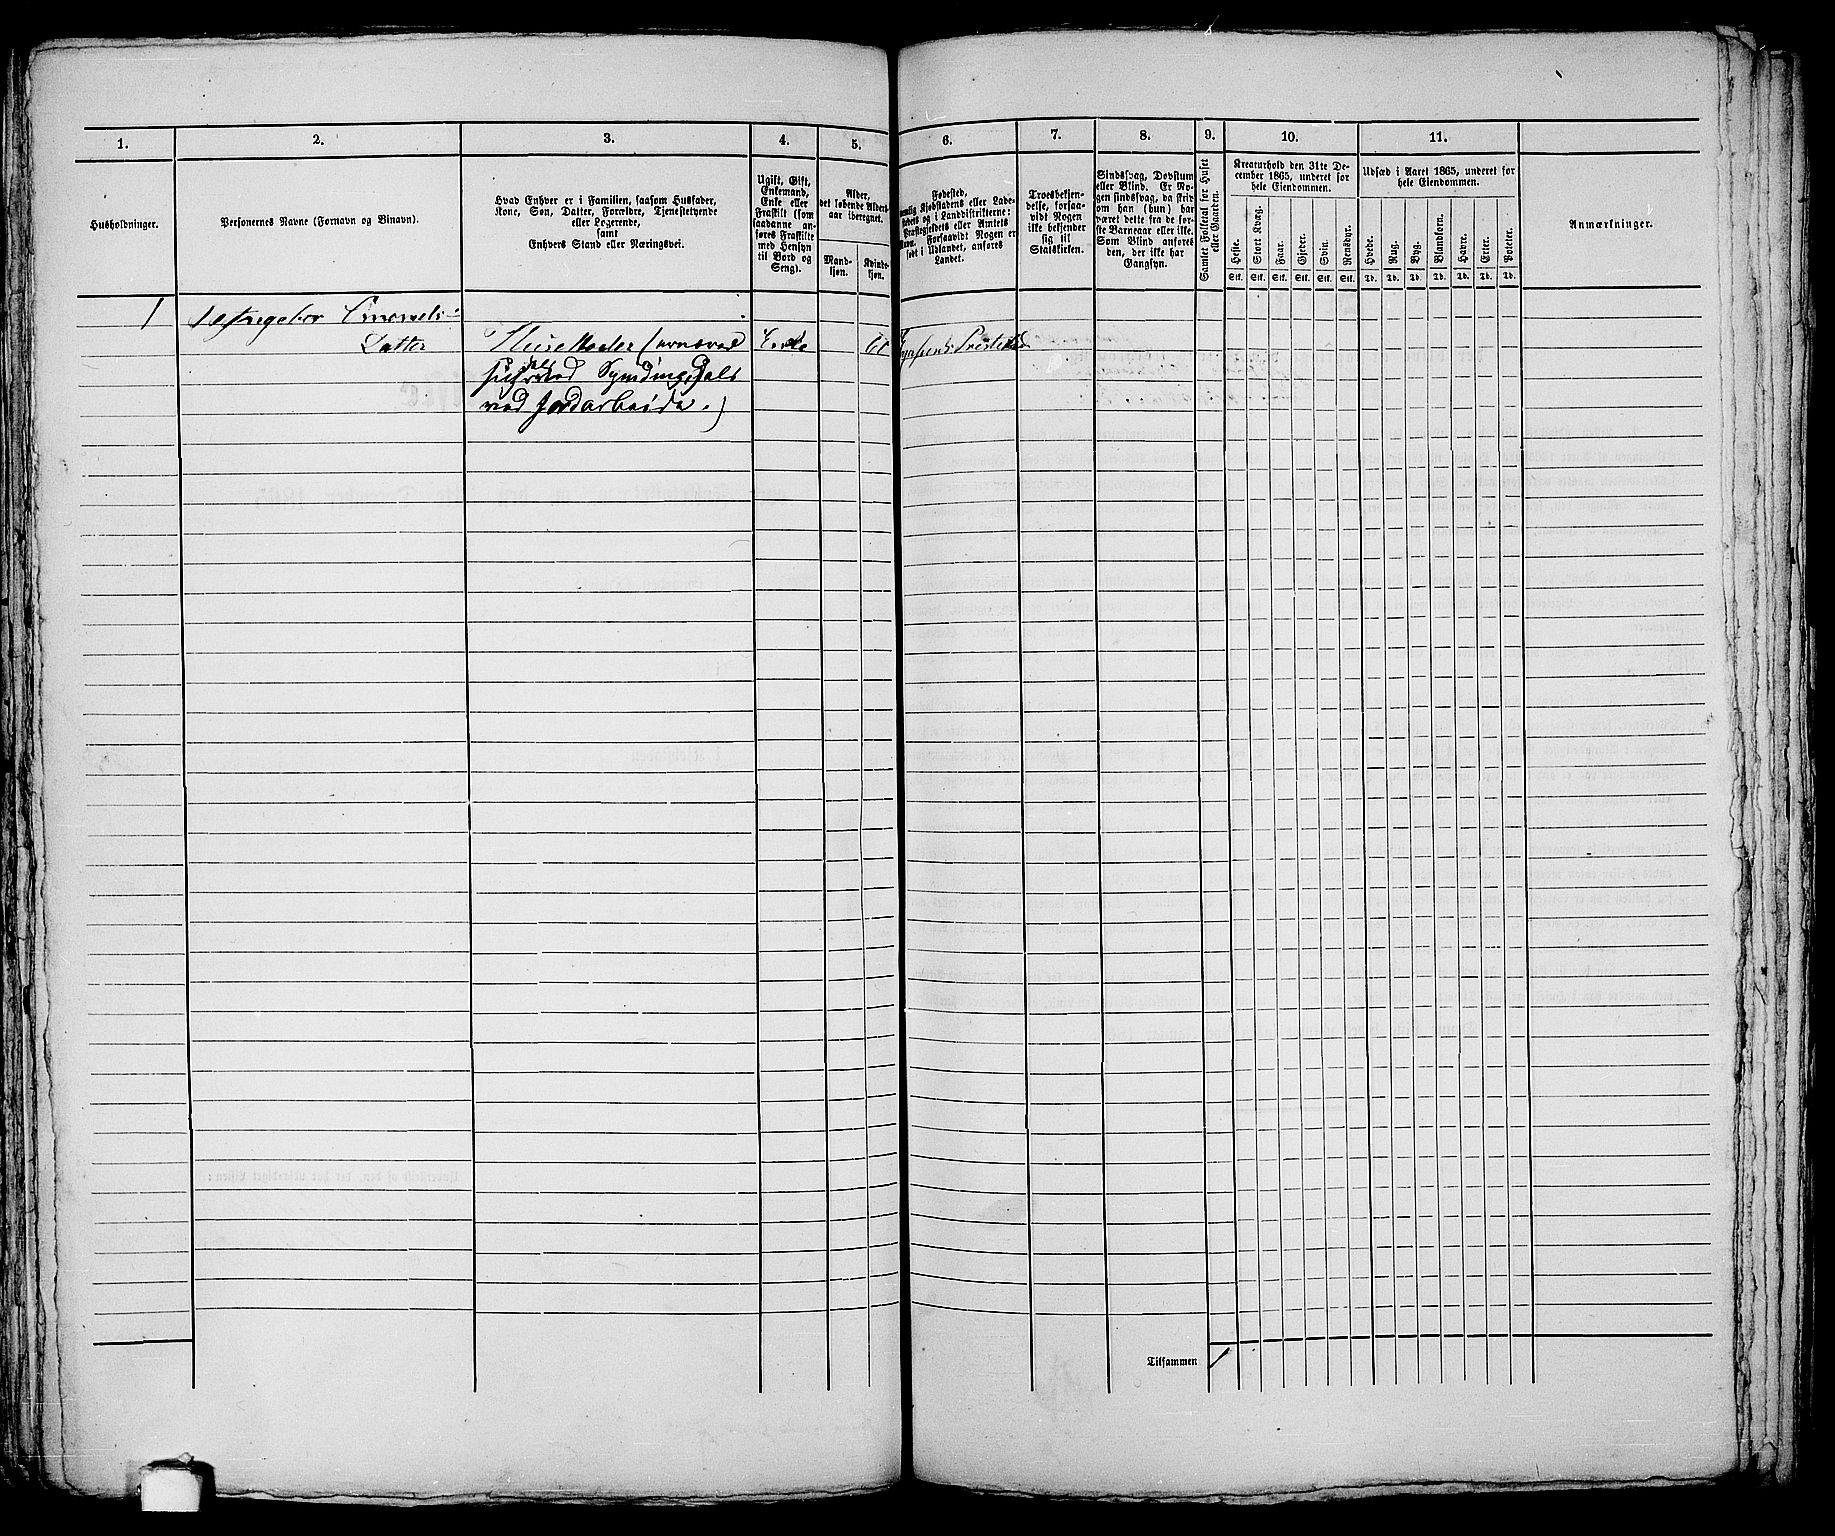 1.
2.
3.
4.
5.
6.
7.
8.
9.
10.
11.
Husholdninger.
Personernes Navne (Fornavn og Binavn).
Hvad Enhver er i Familien, saasom Husfader,
Kone, Søn, Datter, Forældre, Tjenestetyende
eller Logerende,
samt
Enhvers Stand eller Næringsvei.
Ugift, Gift,
Enkemand,
Enke eller
Fraskilt (som
saadanne an-
føres Fraskilte
med Hensyn
til Bord og
Seng).
Alder,
det løbende Alders-
aar iberegnet.
Mand-
kjøn.
Kvinde-
kjøn.
Fødested,
nemlig Kjøbstadens eller Lade-
stedets og i Landdistrikterne:
Præstegjeldets eller Amtets
Navn. Forsaavidt Nogen er
født i Udlandet, anføres
Landet.
Troesbekjen-
delse, forsaa-
vidt Nogen
ikke bekjender
sig til
Statskirken.
Sindssvag, Døvstum
eller Blind. Er No-
gen sindssvag, da skriv
om han (hun) har
været dette fra de før-
ste Barneaar eller ikke.
Som Blind anføres
den, der ikke har
Gangsyn.
Samlet Folketal for Huset
eller Gaarden.
Kreaturhold den 31te De-
cember 1865, underet for
hele Eiendommen.
Heste.
Stort Kvæg.
Faar.
Gjeder.
Svin.
Rensdyr.
Stk. Stk. Stk. Stk. Stk. Stk.
Udsæd i Aaret 1865, underet for
hele Eiendommen.
Hvede.
Rug.
Byg.
Blandkorn.
Havre.
Erter.
Poteter.
Td. Td. Td. Td. Td. Td. Td.
Anmærkninger.
1
Datter
Enke
ved Jordarbeide.)
Tilsammen
1